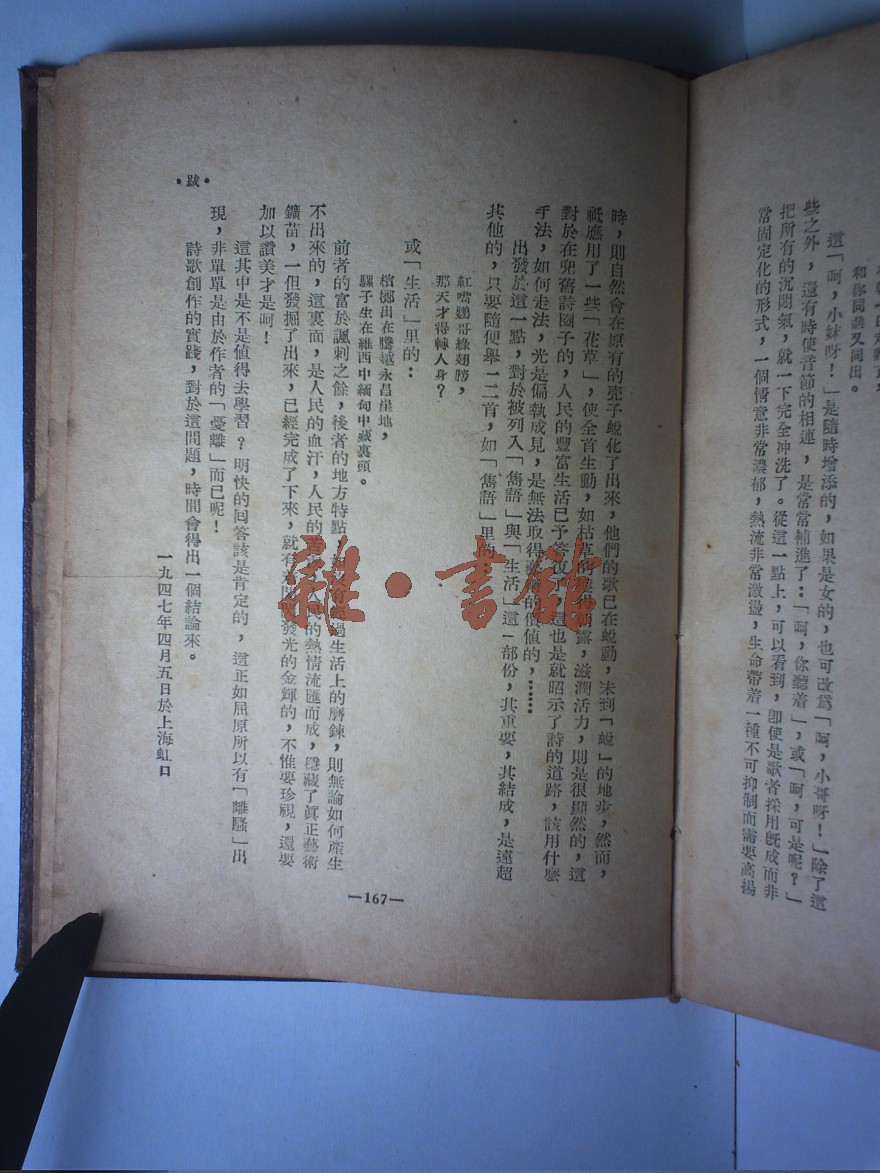 和你同講又同出。
這「呵，小妹呀！」是隨時增添的，如果是女的，也可改爲「呵，小哥呀！」除了這
些之外，還有時使音節的相連，是常常補進了：「呵，你聽着」，或「呵，可是呢？」
把所有的沉悶氣，就一下完全冲洗了。從這一點上，可以看到，卽使是歌者採用旣成而非
常固定化的形式，一個情意非常濃郁，熱流非常激盪，生命帶着一種不可抑制而需要高揚
時，則自然會在原有的壳子蛻化了出來，他們的歌已在蛻動，未到「蛻」的地步，然而，
祇應用了一些「花草」，使全首生動，如枯草的 露，滋潤活力，則是很顯然的，這
對於在兜舊詩圈子的，人民的豐富生活已予答復了，這也是就昭示了詩的道路，該用什麽
手法，如何走法，光是偏執成見，是無法取得 的價值的，………
出發於這一點，對於被列入「雋語」與「生活」這一部份，其重要，其結成，是遠超
其他的，只要隨便舉一二首，如「雋語」里的：
紅嘴鸚哥綠翅膀，
那天才得轉人身？
或「生活」里的：
檳榔出在騰越永昌崖地，
騾子生在維西中緬甸中藏裏頭。
前者的富於諷刺之餘，後者的地方特點， 沒有 過生活上的磨鍊，則無論如何產生
不出來的，這裏面，是人民的血汗，人民的 人民的熱情流匯而成，穩藏了眞正藝術
鑛苗，一但發掘了出來，已經完成了下來，就有 發光的金輝的，不惟要珍視，還要
加以讚美才是呵！
這其中是不是值得去學習？明快的回答該是肯定的，這正如屈原所以有「離騷」出
現，非單單是由於作者的「憂離」而已呢！
詩歌創作的實踐，對於這問題，時間會得出一個結論來。
一九四七年四月五日於上海虹口
•跋•
—167—
雜•書館